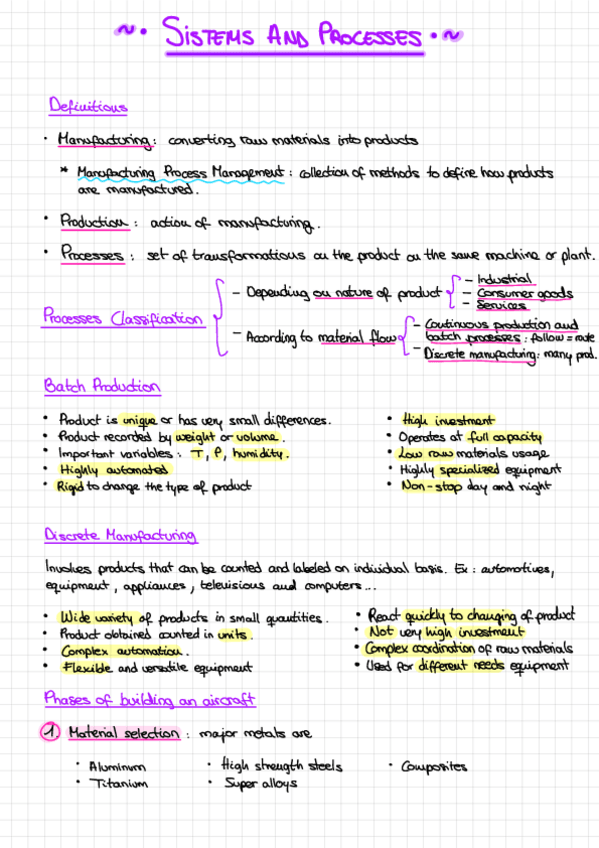 ~· SISTEMS AND PROCESSES ·~
Definitions
· Manufacturing: converting raw materials into products
* Manufacturing Process Management: collection of methods to define how products
are manufactured.
· Production: action of manufacturing.
· Processes: set of transformations on the product on the same machine or plant.
Processes Classification
- Depending on nature of product
- Industrial
- Consumer goods
- Services
- According to material flow
- Continuous production and
batch processes: follow = route
- Discrete manufacturing: many prod.
Batch Production
· Product is unique or has very small differences.
· Product recorded by weight or volume.
· Important variables: T, P, humidity.
· Highly automated
· Rigid to change the type of product
· High investment
· Operates at full capacity
· Low raw materials usage
· Highly specialized equipment
· Non-stop day and night
Discrete Manufacturing
Involves products that can be counted and labeled on individual basis. Ex: automotives,
equipment, appliances, televisions and computers...
· Wide variety of products in small quantities.
· Product obtained counted in units.
· Complex automation.
· Flexible and versatile equipment
· React quickly to changing of product
· Not very high investment
· Complex coordination of raw materials
· Used for different needs equipment
Phases of building an aircraft
1. Material selection: major metals are
· Aluminum
· Titanium
· High strength steels
· Super alloys
· Composites